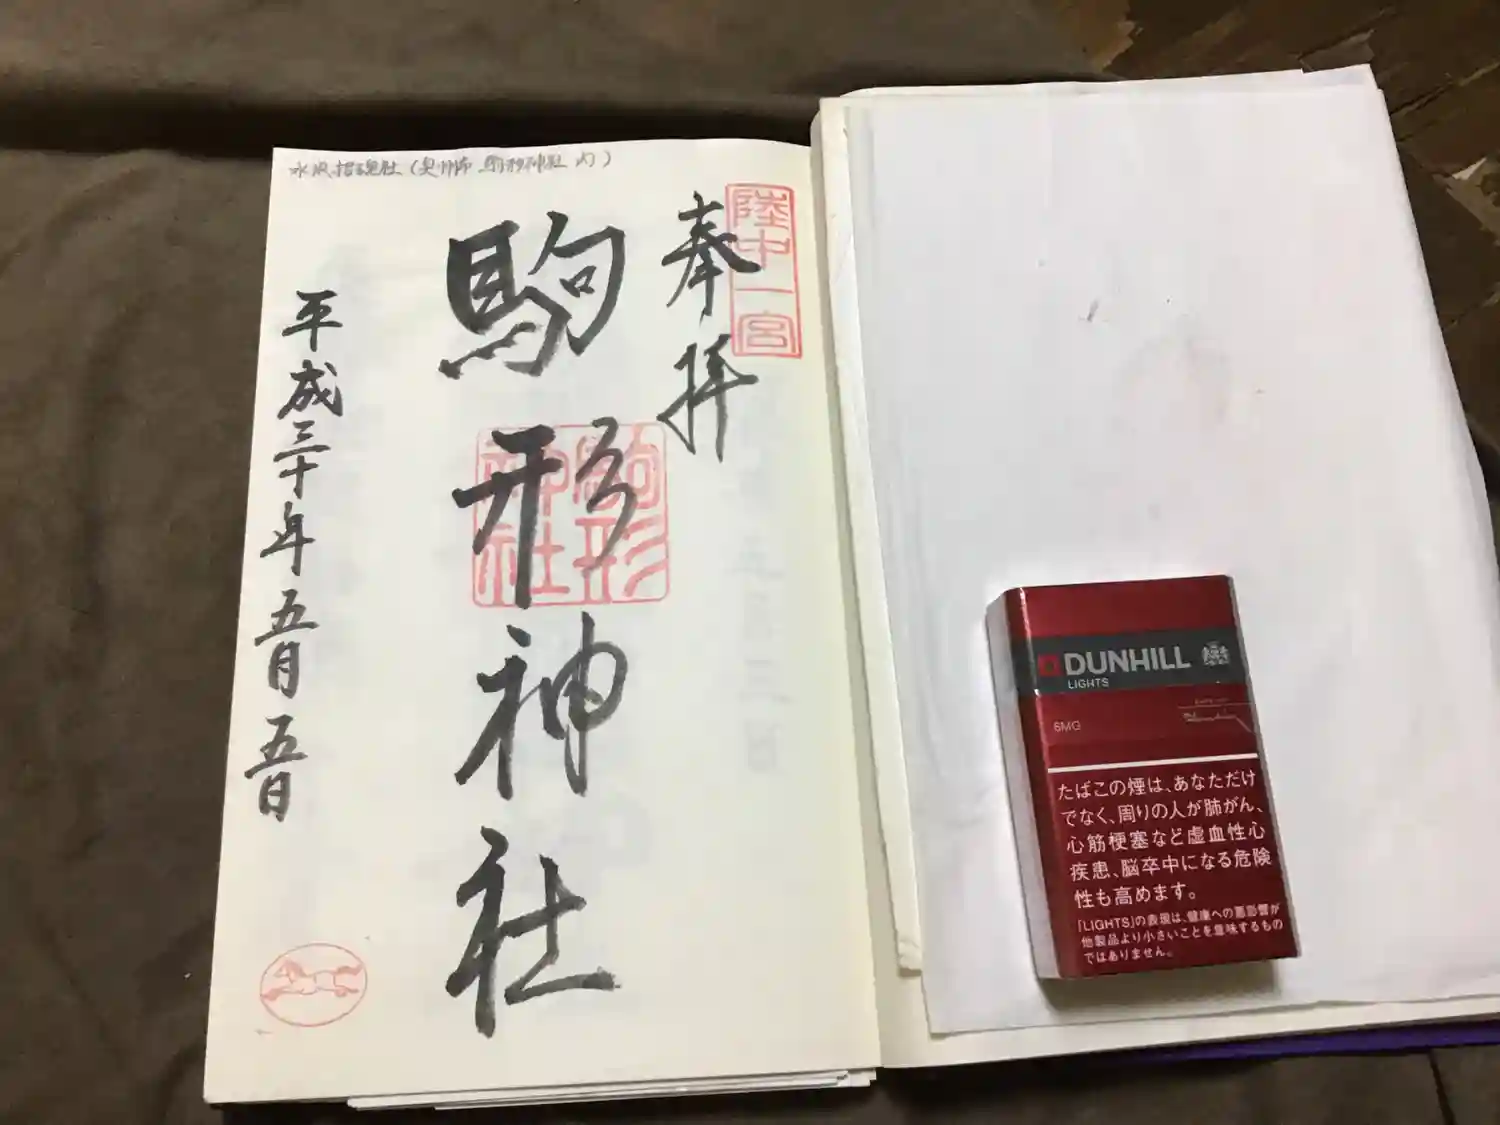 水沢招魂社(奥州市 駒形神社 内)
陸中一宮
奉拝
駒形神社
駒形
神社
平成三十年五月五日
DUNHILL
LIGHTS
6MG
たばこの煙は、あなただけ
でなく、周りの人が肺がん、
心筋梗塞など虚血性心
疾患、脳卒中になる危険
性も高めます。
「LIGHTS」の表現は、健康への悪影響が
他製品より小さいことを意味するもの
ではありません。